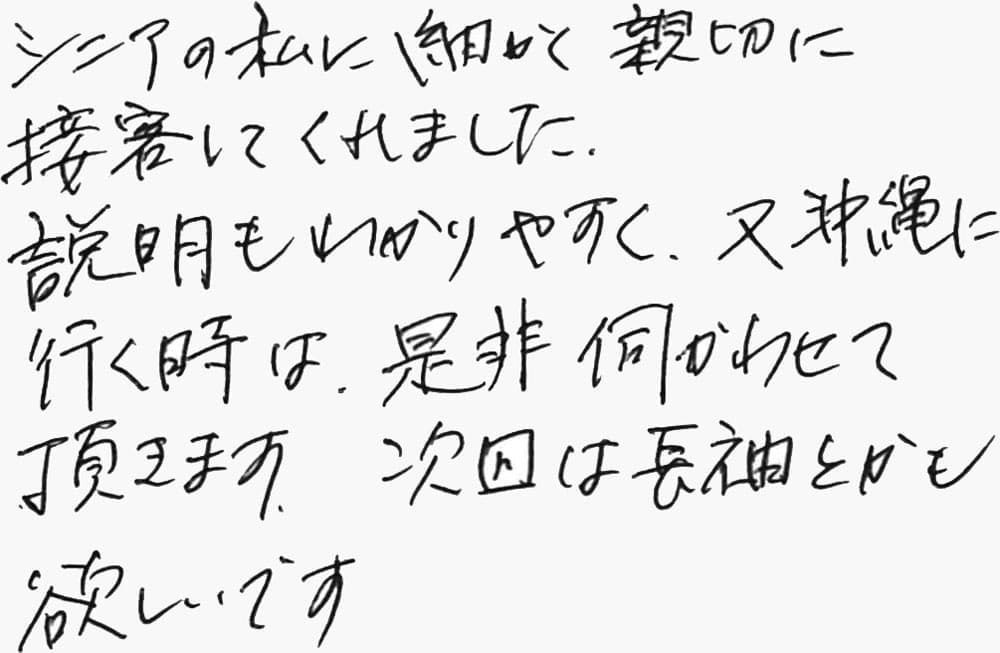 シニアの私に細かく親切に
接客してくれました.
説明もわかりやすく、又沖縄に
行く時は、是非伺かわせて
頂きます、次回は長袖とかも
欲しいです